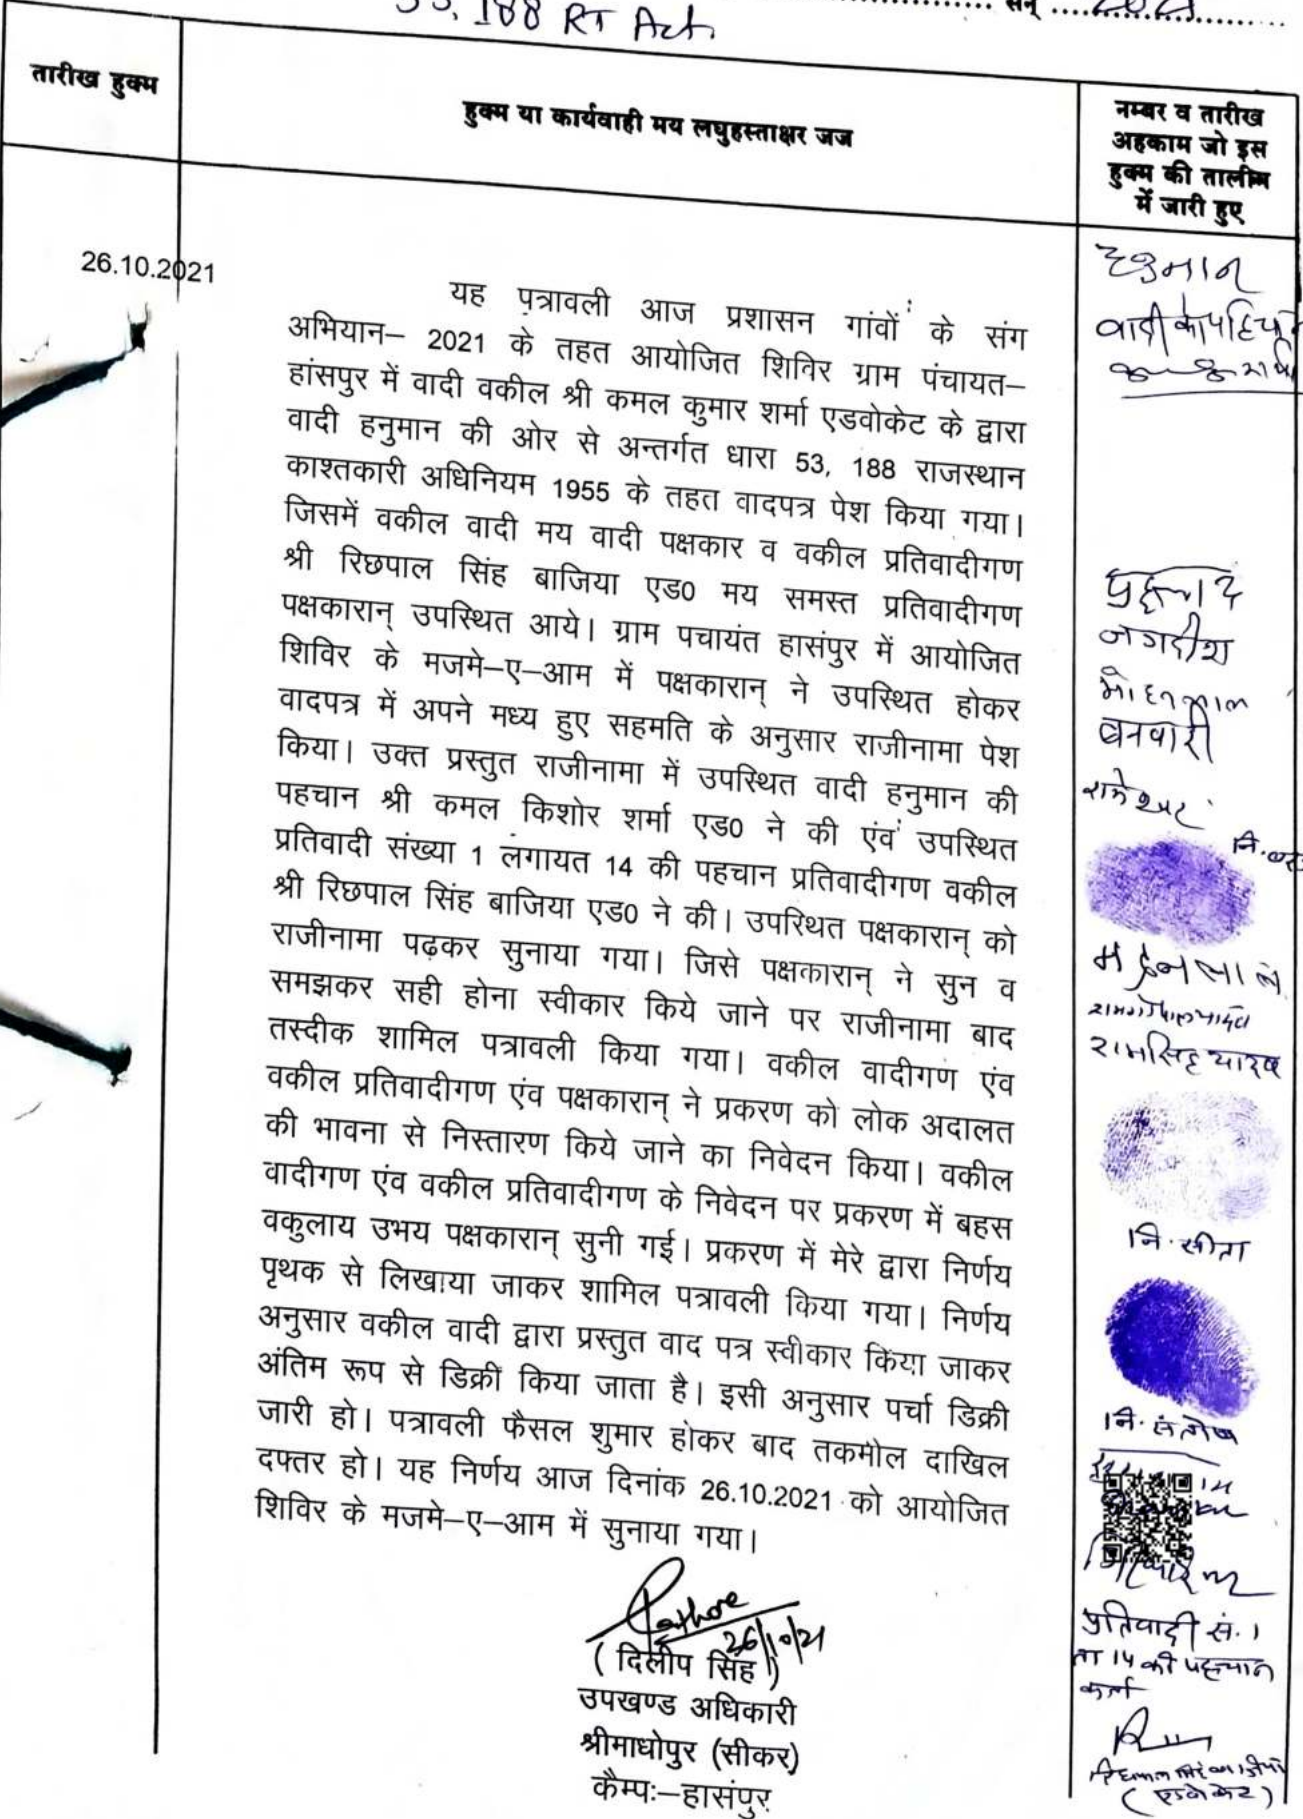 53, 188 RT Act.
सन् 2021
तारीख हुक्म
हुक्म या कार्यवाही मय लघुहस्ताक्षर जज
नम्बर व तारीख
अहकाम जो इस
हुक्म की तालीम
में जारी हुए
26.10.2021
यह पत्रावली आज प्रशासन गांवों के संग
अभियान– 2021 के तहत आयोजित शिविर ग्राम पंचायत–
हांसपुर में वादी वकील श्री कमल कुमार शर्मा एडवोकेट के द्वारा
वादी हनुमान की ओर से अन्तर्गत धारा 53, 188 राजस्थान
काश्तकारी अधिनियम 1955 के तहत वादपत्र पेश किया गया।
जिसमें वकील वादी मय वादी पक्षकार व वकील प्रतिवादीगण
श्री रिछपाल सिंह बाजिया एड0 मय समस्त प्रतिवादीगण
पक्षकारान् उपस्थित आये। ग्राम पचायंत हासंपुर में आयोजित
शिविर के मजमे–ए–आम में पक्षकारान् ने उपस्थित होकर
वादपत्र में अपने मध्य हुए सहमति के अनुसार राजीनामा पेश
किया। उक्त प्रस्तुत राजीनामा में उपस्थित वादी हनुमान की
पहचान श्री कमल किशोर शर्मा एड0 ने की एंव उपस्थित
प्रतिवादी संख्या 1 लगायत 14 की पहचान प्रतिवादीगण वकील
श्री रिछपाल सिंह बाजिया एड0 ने की। उपस्थित पक्षकारान् को
राजीनामा पढ़कर सुनाया गया। जिसे पक्षकारान् ने सुन व
समझकर सही होना स्वीकार किये जाने पर राजीनामा बाद
तस्दीक शामिल पत्रावली किया गया। वकील वादीगण एंव
वकील प्रतिवादीगण एंव पक्षकारान् ने प्रकरण को लोक अदालत
की भावना से निस्तारण किये जाने का निवेदन किया। वकील
वादीगण एंव वकील प्रतिवादीगण के निवेदन पर प्रकरण में बहस
वकुलाय उभय पक्षकारान् सुनी गई। प्रकरण में मेरे द्वारा निर्णय
पृथक से लिखाया जाकर शामिल पत्रावली किया गया। निर्णय
अनुसार वकील वादी द्वारा प्रस्तुत वाद पत्र स्वीकार किया जाकर
अंतिम रूप से डिक्री किया जाता है। इसी अनुसार पर्चा डिक्री
जारी हो। पत्रावली फैसल शुमार होकर बाद तकमोल दाखिल
दफ्तर हो। यह निर्णय आज दिनांक 26.10.2021 को आयोजित
शिविर के मजमे–ए–आम में सुनाया गया।
Rathore
26/10/21
( दिलीप सिंह )
उपखण्ड अधिकारी
श्रीमाधोपुर (सीकर)
कैम्पः–हासंपुर
हनुमान
वादी का
प्रहलाद
जगदीश
मोहनलाल
बनवारी
रामेश्वर
नि.
मदनलाल
रामगोपाल यादव
रामसिंह यादव
नि. सीता
नि. संतोष
प्रतिवादी सं. 1
ता 14 की पहचान
कर्ता
(एडवोकेट)